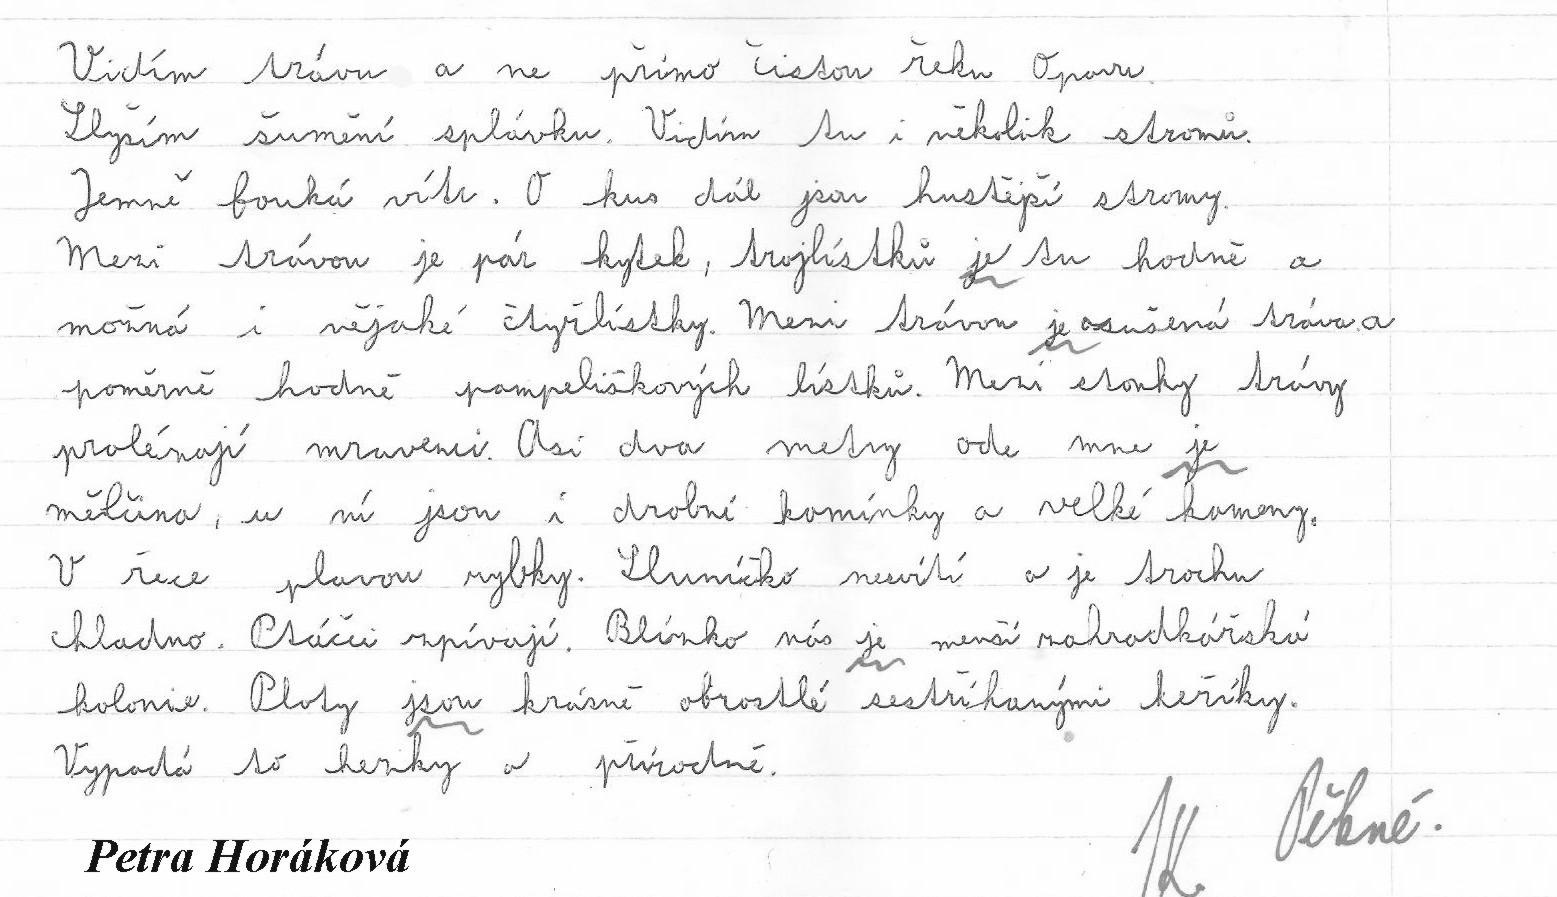 Vidím trávu a ne přímo čistou řeku Opavu.
Slyším šumění splávku. Vidím tu i několik stromů.
Jemně fouká vítr. O kus dál jsou hustější stromy.
Mezi trávou je pár kytek, trojlístků je tu hodně a
možná i nějaké čtyřlístky. Mezi trávou je usušená tráva a
poměrně hodně pampeliškových lístků. Mezi stonky trávy
prolézají mravenci. Asi dva metry ode mne je
mělčina, u ní jsou i drobné kamínky a velké kameny.
V řece plavou rybky. Sluníčko nesvítí a je trochu
chladno. Ptáčci zpívají. Blízko nás je menší zahradkářská
kolonie. Ploty jsou krásně obrostlé sestříhanými keříky.
Vypadá to hezky a přírodně.
Pěkné.
Petra Horáková